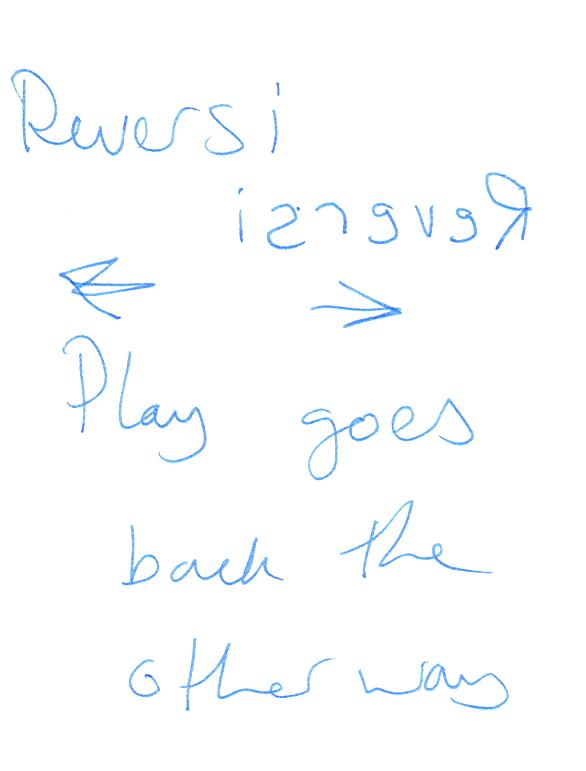 Reversi
Reversi
← →
Play goes
back the
other way